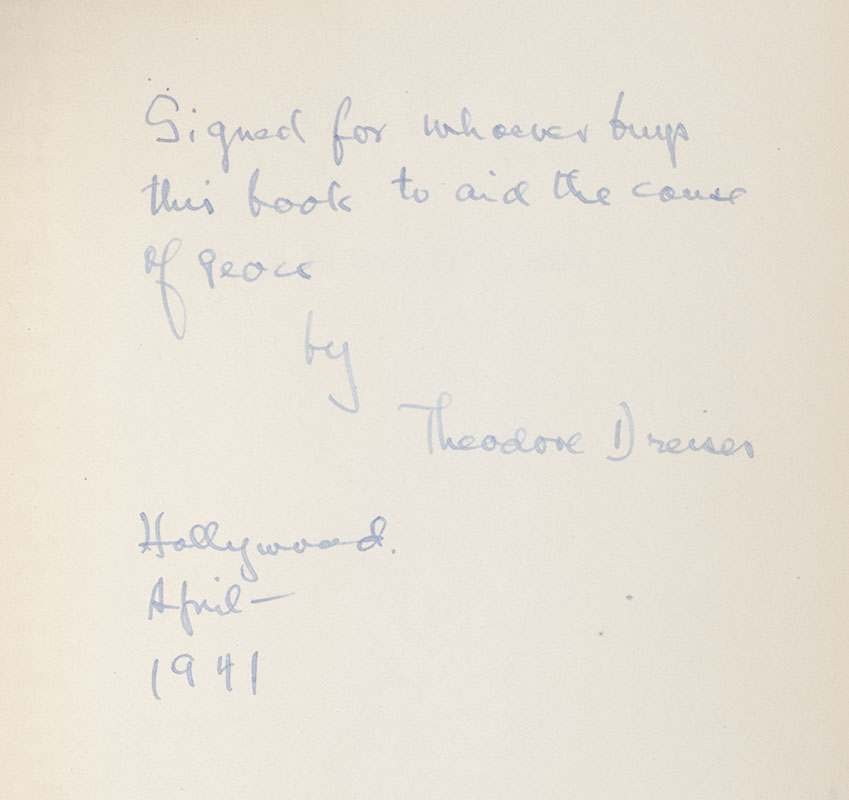 Signed for whoever buys
this book to aid the cause
of peace
by
Theodore Dreiser
Hollywood.
April —
1941